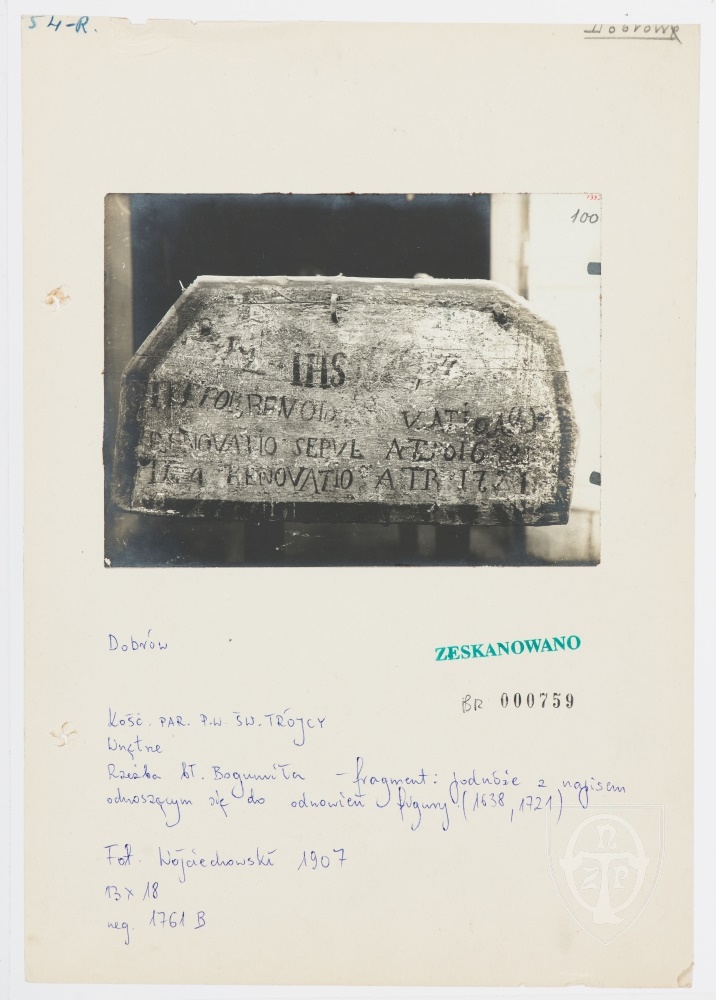 54-R.
100
IHS
RENOVATIO SEPUL
IIa RENOVATIO A TR 1721
Dobrów
ZESKANOWANO
BR 000759
KOŚĆ. PAR. P.W. ŚW. TRÓJCY
Wnętrze
Rzeźba bł. Bogumiła - fragment: podnóże z napisem
odnoszącym się do odnowień figury (1638, 1721)
Fot. Wojciechowski 1907
13 x 18
neg. 1761 B
TNZP